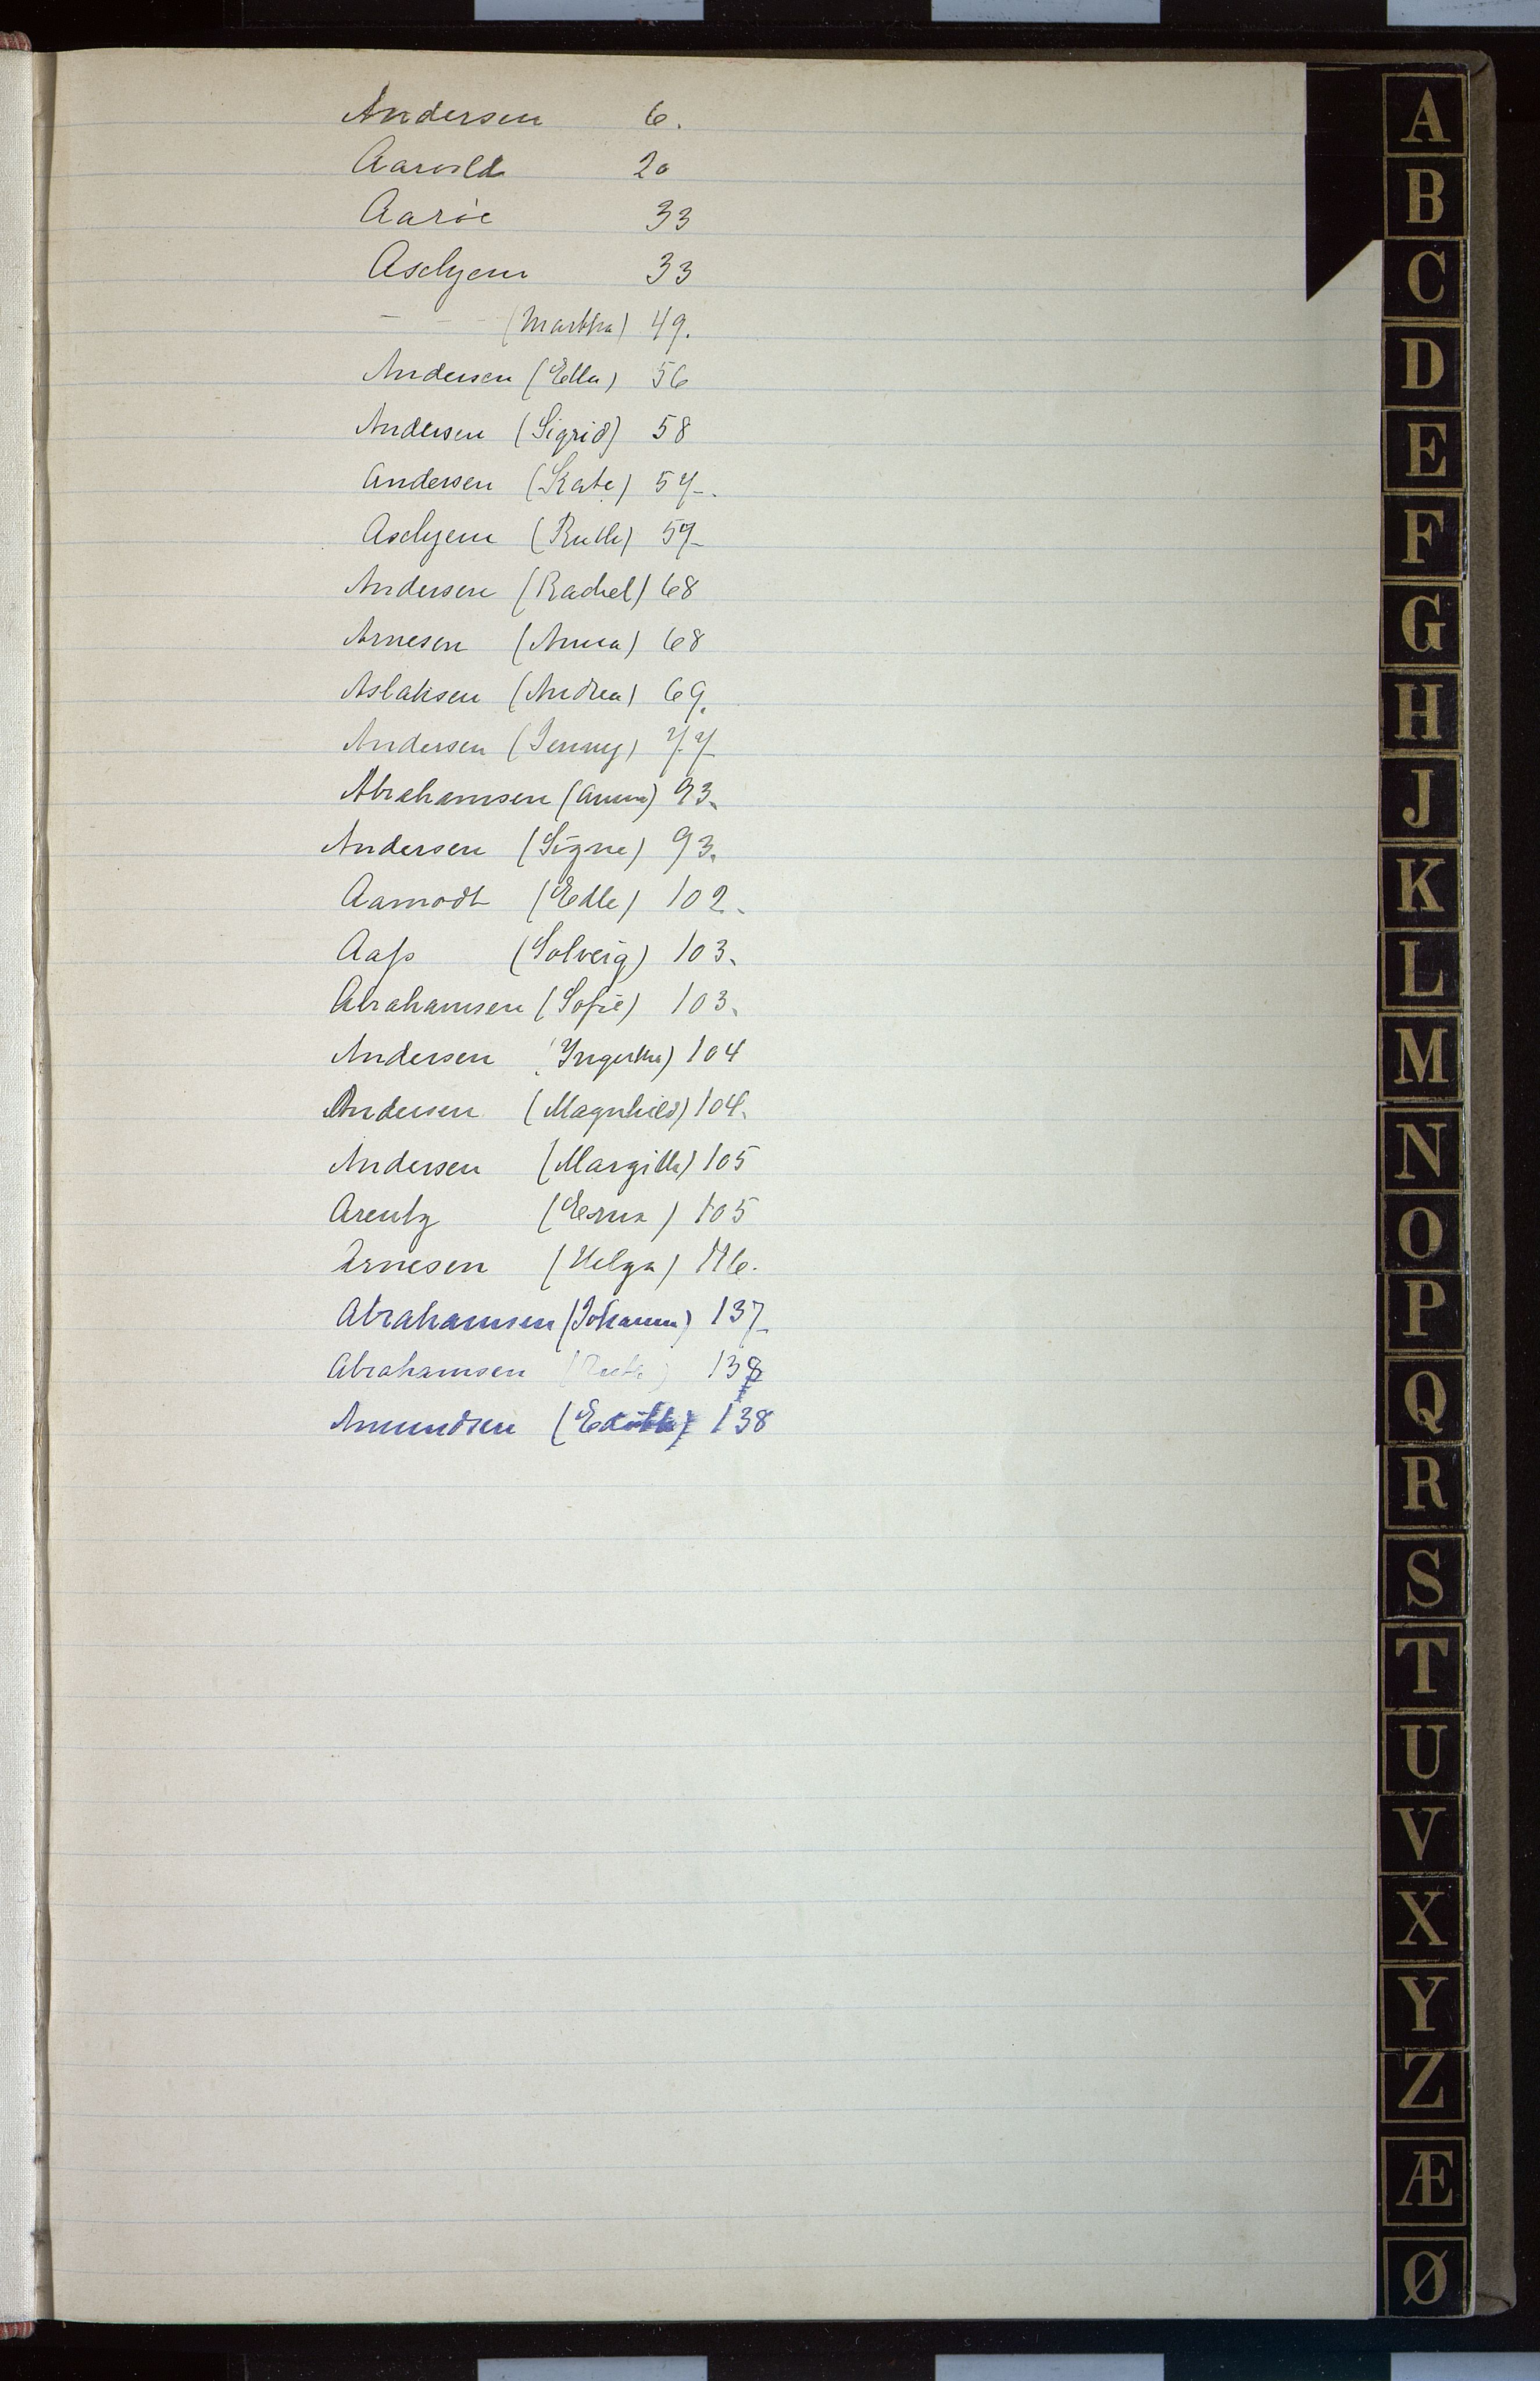 Andersen 6.
Aarvold 20
Aaröe 33
Aschjem 33
- - (Martha) 49.
Andersen (Ella) 56
Andersen (Sigrid) 58
Andersen (Kate) 57.
Aschjem (Ruth) 57
Andersen (Rachel) 68
Arnesen (Anna) 68
Aslaksen (Andrea) 69.
Andersen (Jenny) 77
Abrahamsen (Anna) 93.
Andersen (Signe) 93.
Aamodt (Edle) 102.
Aass (Solveig) 103.
Abrahamsen (Sofie) 103.
Andersen (Ingertha) 104
Andersen (Magnhild) 104.
Andersen (Margitha) 105
Arentz (Erna) 105
Arnesen (Helga) 116.
Abrahamsen (Johanna) 137
Abrahamsen (Ruth) 138
Amundsen (Edith) 138
A
B
C
D
E
F
G
H
J
K
L
M
N
O
P
Q
R
S
T
U
V
X
Y
Z
Æ
Ø